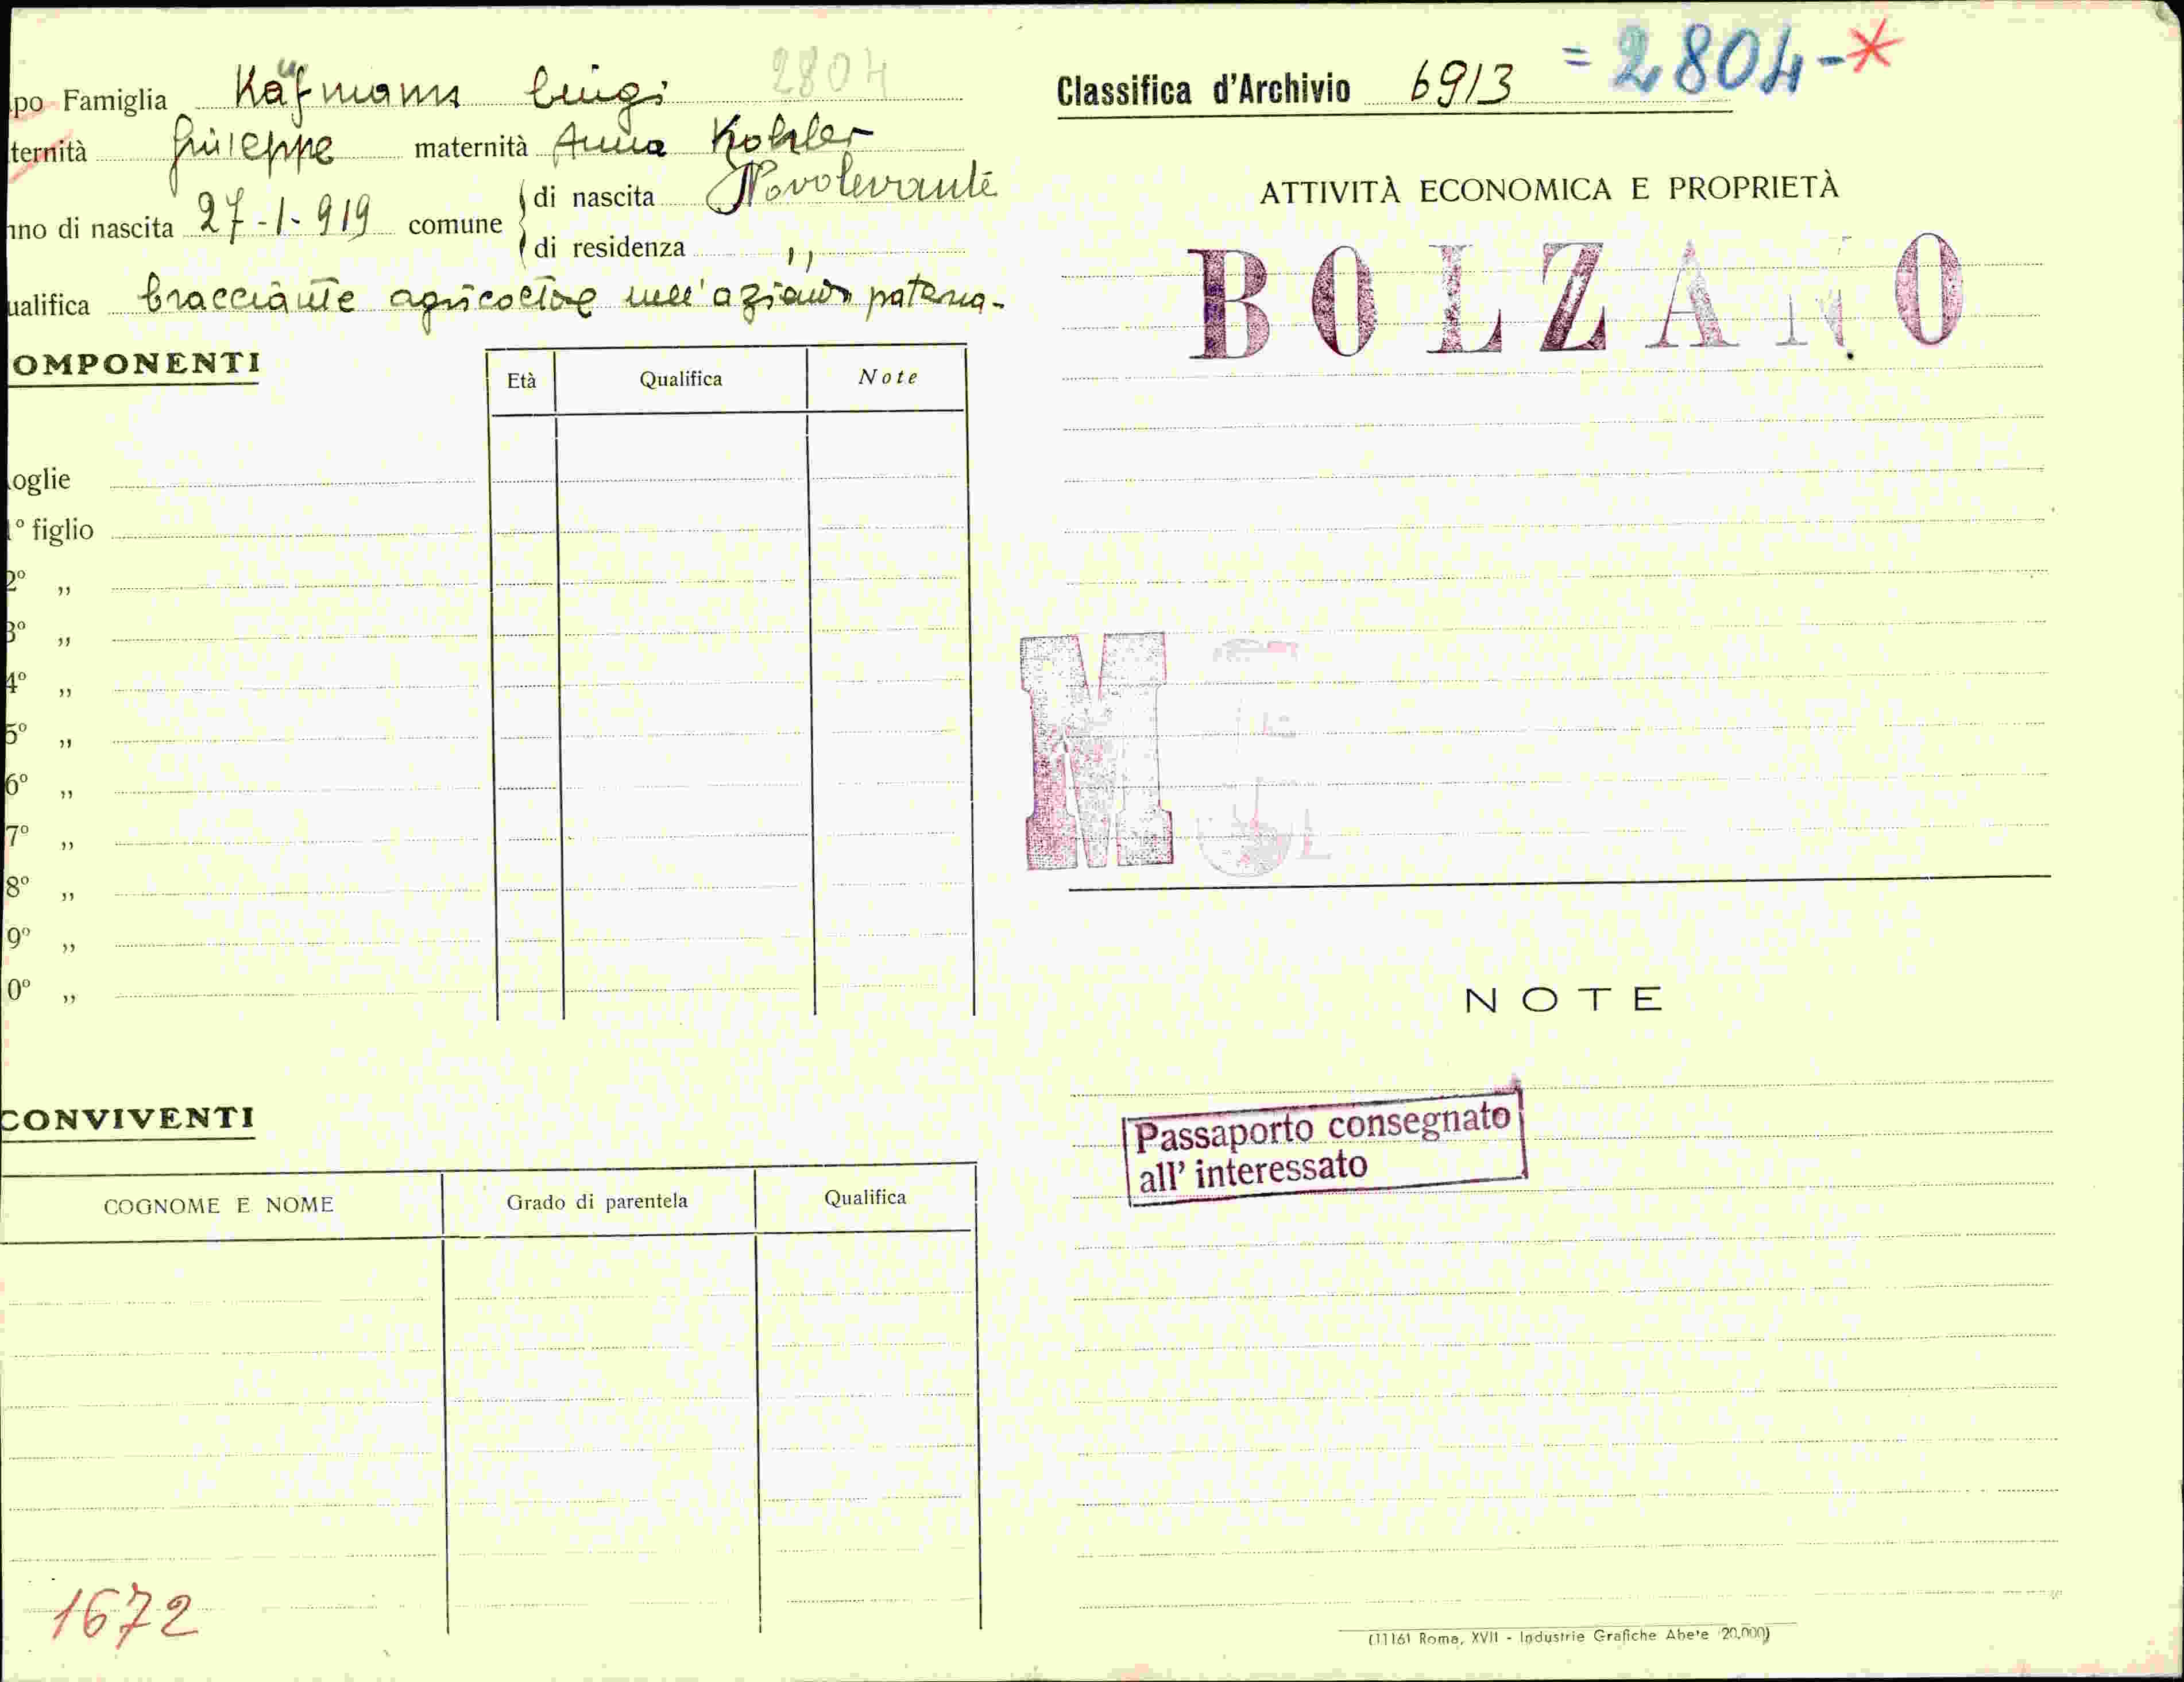 po Famiglia Käfmann Luigi 2804
ternità Giuseppe maternità Anna Kohler
nno di nascita 27-1-919 comune di nascita Novolevante
di residenza "
ualifica bracciante agricoltore nell'azienda paterna-
OMPONENTI
Età Qualifica Note
oglie
1° figlio
2° „
3° „
4° „
5° „
6° „
7° „
8° „
9° „
0° „
CONVIVENTI
COGNOME E NOME Grado di parentela Qualifica
1672
Classifica d'Archivio 6913 = 2804-*
ATTIVITÀ ECONOMICA E PROPRIETÀ
BOLZANO
M
NOTE
Passaporto consegnato
all' interessato
(11161 Roma, XVII - Industrie Grafiche Abete 20.000)